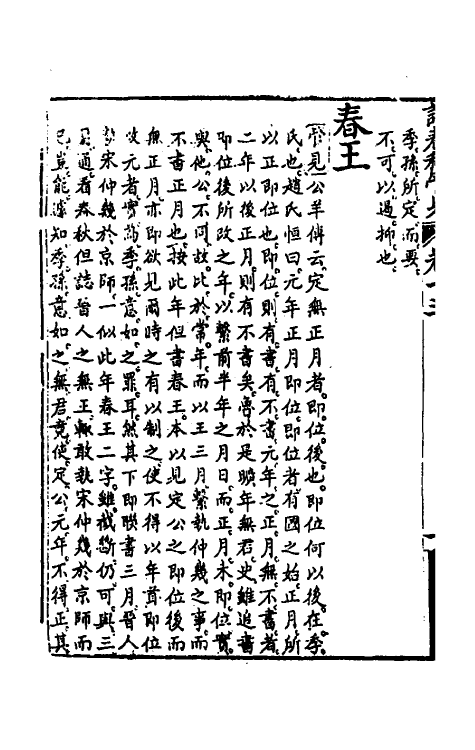 季孫所定而要
不可以過抑也
春王
公羊傳云定無正月者即位後也即位何以後在季
氏也趙氏恒曰元年正月即位即位者有國之始正月所
以正即位也即位則有書有不書元年之正月無不書者
二年以後正月則有不書矣魯於是曠年無君史雖追書
即位後所改之年以繫前半年之月日而正月未即位實
與他公不同故比於常年而以王三月繫執仲幾之事而
不書正月也按此年但書春王本以見定公之即位後而
無正月亦即欲見爾時之有以制之使不得以年首即位
改元者實為季孫意如之罪耳然其下即聯書三月晉人
宋仲幾於京師一似此年春王二字雖截斷仍可與三
通看春秋但誌晉人之無王輒敢執宋仲幾於京師而
已豈能遽知季孫意如之無君竟使定公元年不得正其